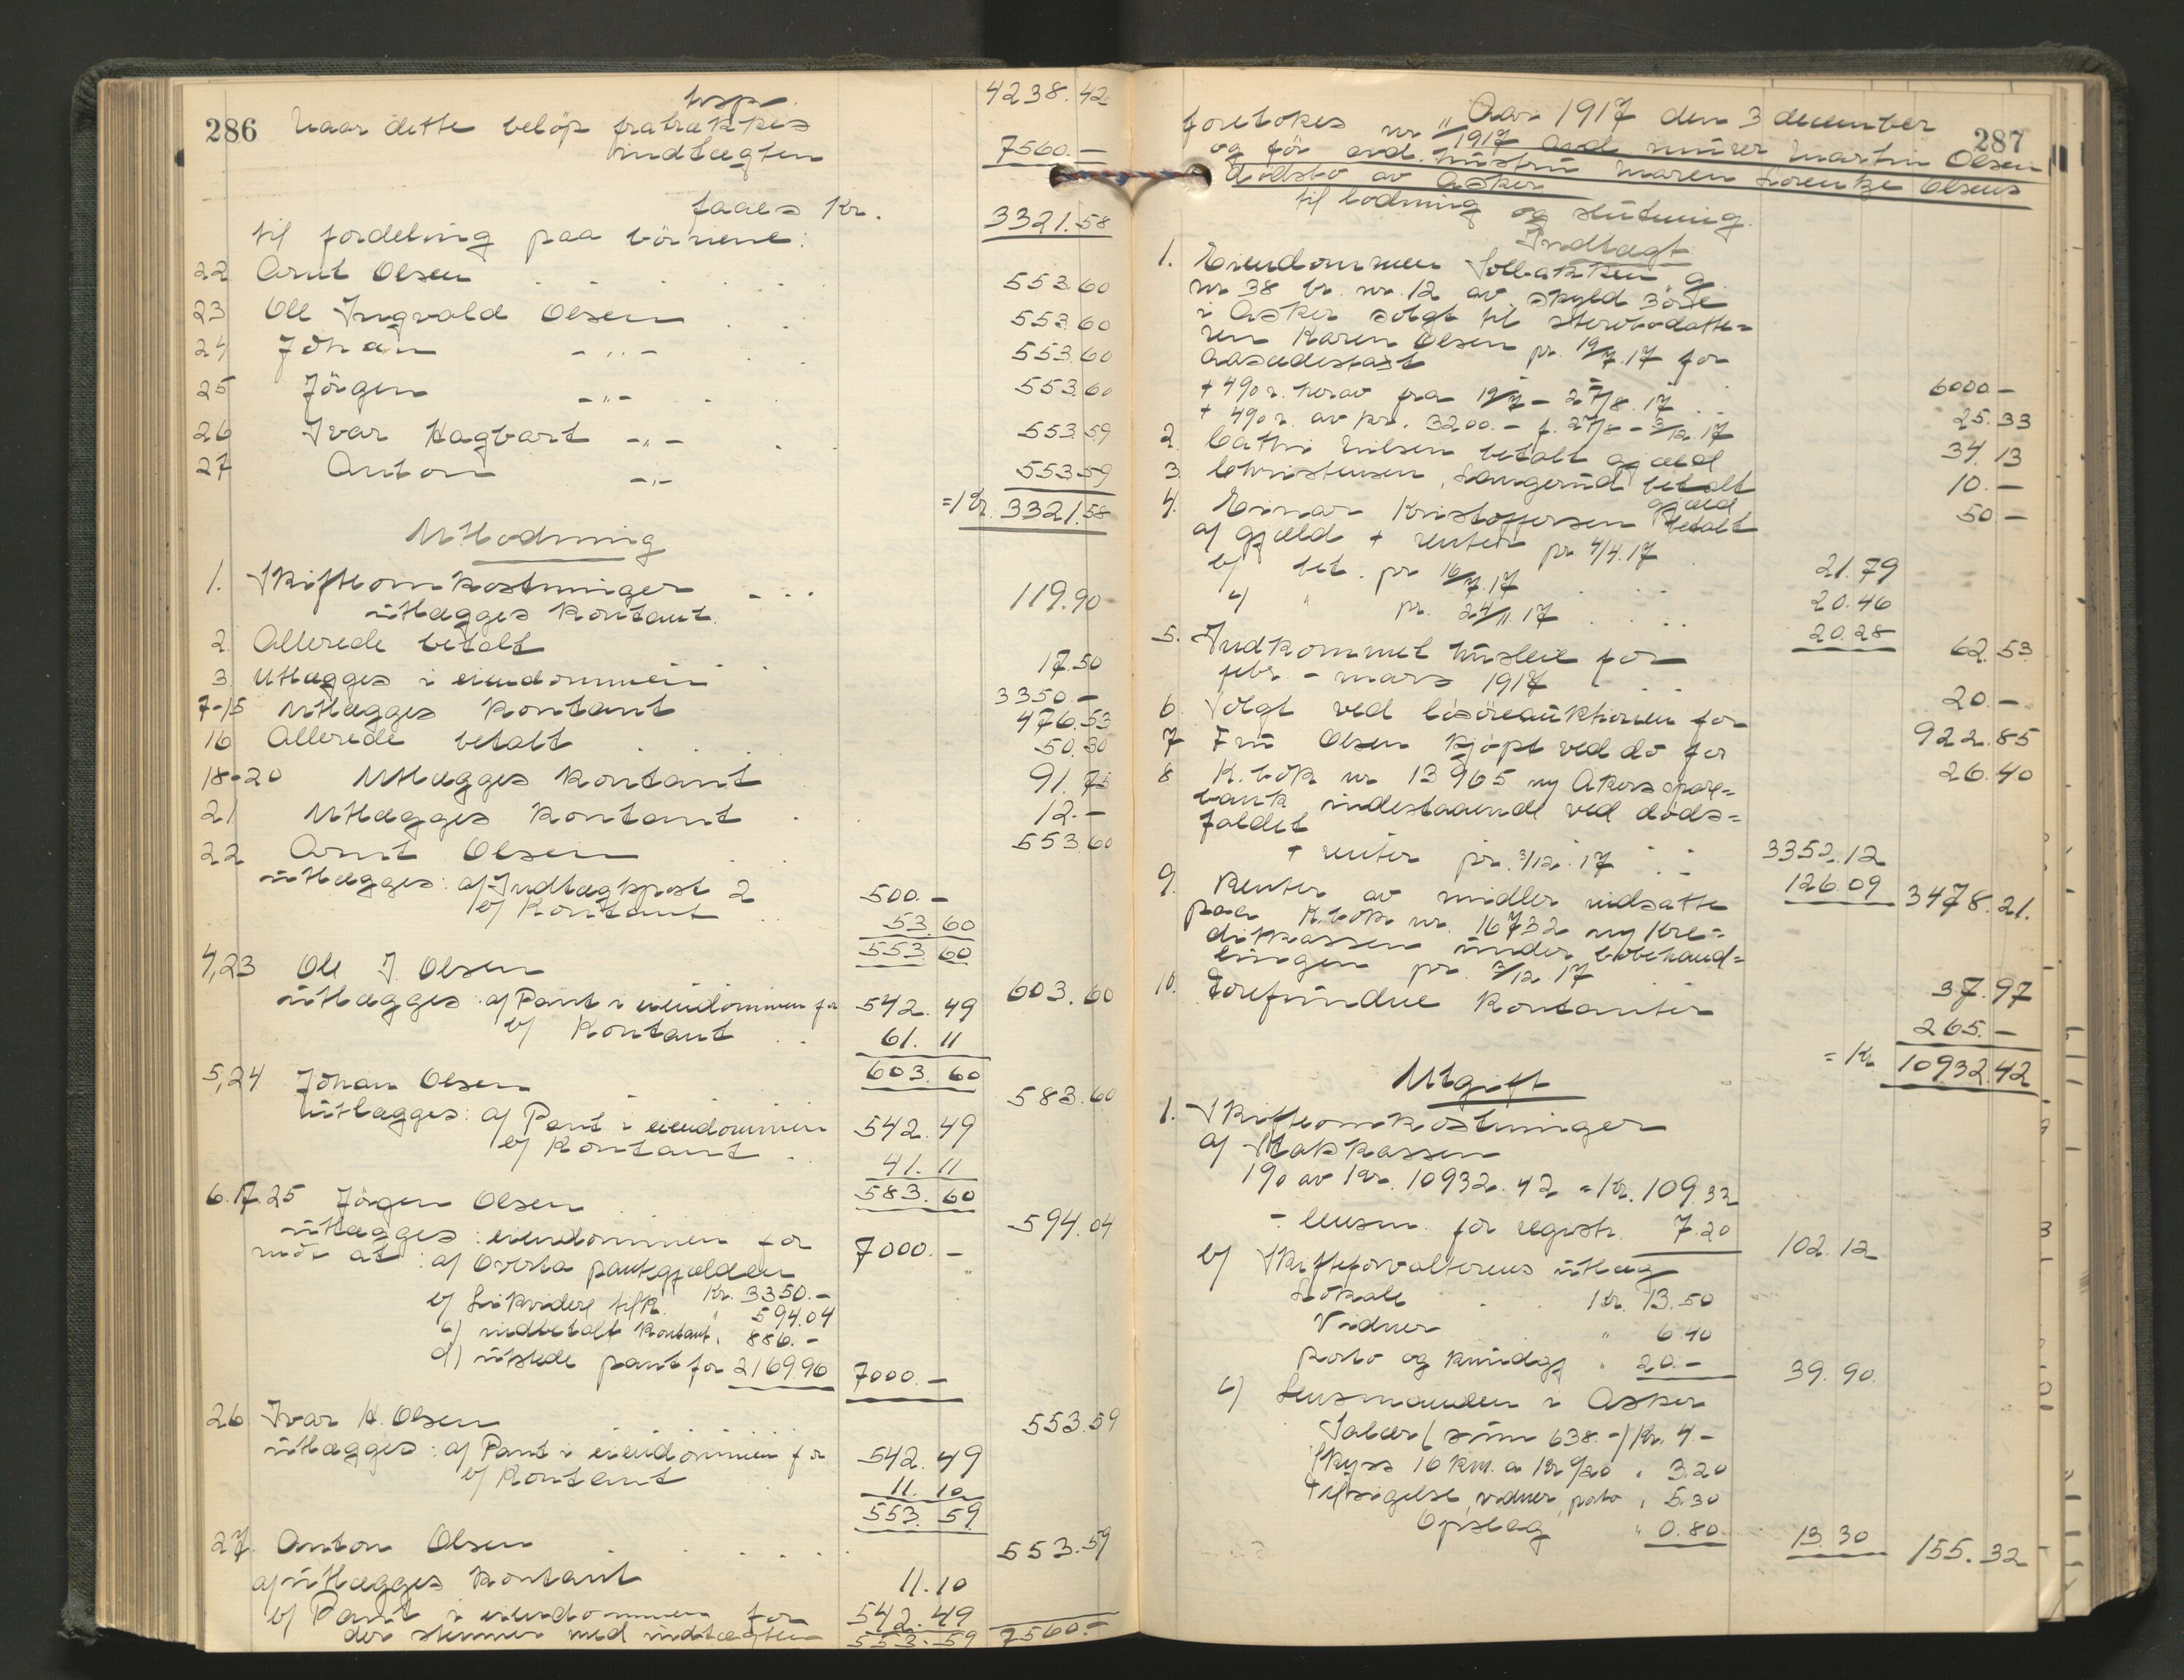 286
trsp. 4238.42
Naar dette beløp fratrækkes
indtægten 7560.—
faaes Kr. 3321.58
til fordeling paa börnene:
22 Arnt Olsen 553.60
23 Ole Ingvald Olsen 553.60
24 Johan —"— 553.60
25 Jörgen —"— 553.60
26 Ivar Hagbart —"— 553.59
27 Anton —"— 553.59
= Kr. 3321.58
Utlodning
1. Skifteomkostninger
utlægges kontant. 119.90
2. Allerede betalt 17.50
3 Utlægges i eiendommen 3350.—
7-15 Utlægges kontant 476.53
16 Allerede betalt 50.30
18-20 Utlægges kontant 91.75
21 Utlægges kontant 12.—
22 Arnt Olsen 553.60
utlægges: a/ Indtægtspost 2 500.—
b/ Kontant 53.60
553.60
4,23 Ole I. Olsen 603.60
utlægges: a/ Pant i eiendommen for 542.49
b/ Kontant 61.11
603.60
5,24 Johan Olsen 583.60
utlægges: a/ Pant i eiendommen 542.49
b/ Kontant 41.11
583.60
6.17.25 Jörgen Olsen 594.04
utlægges: eiendommen for 7000.—
mot at: a/ Overta pantegjælden
Kr. 3350.—
b/ Likvidere tilk. " 594.04
c/ indbetalt kontant " 886.—
d/ utstede pant for 2169.96 7000.—
26 Ivar H. Olsen 553.59
utlægges: a/ Pant i eiendommen for 542.49
b/ Kontant 11.10
553.59
27. Anton Olsen 553.59
a/ utlægges kontant 11.10
b/ Pant i eiendommen for 542.49
der stemmer med indtægten 553.59 7560.—
287
Aar 1917 den 3 december
foretokes nr "/1917 avd. murer Martin Olsen
og för avd. hustru Maren Lorentze Olsens
dödsbo av Asker
til lodning og slutning.
Indtægt
1. Eiendommen Solbakken g.
nr 38 br. nr. 12 av skyld 3 öre
i Asker solgt til stervbodatte=
ren Karen Olsen pr. 19/7.17 for
aasædestakst 6000 —
+ 4% r. herav fra 19/7 – 27/8.17 25.33
+ 4% r. av kr. 3200.— f. 27/8 – 3/12.17 34.13
2. Cathr. Nilsen betalt gjæld 10.—
3. Christensen, Langerud betalt
gjæld 50 —
4. Einar Kristoffersen betalt
a/ gjæld + renter pr 4/4.17 21.79
b/ bet. pr 16/7.17 20.46
c/ " pr. 24/11.17 20.28 62.53
5. Indkommet husleie for
febr. – mars 1917 20.—
6. Solgt ved lösöreauktionen for 922.85
7 Fru Olsen kjöpt ved do for 26.40
8 K. bok nr 13965 m/ Akers spare=
bank indestaaende ved döds=
faldet 3352.12
+ renter pr. 3/12.17 126.09 3478.21.
9. Renter av midler indsatte
paa K.bok nr. 16732 m/ Kre=
ditkassen under bobehand=
lingen pr. 3/12 17 37.97
10. Forefundne kontanter 265.—
= Kr 10932.42
Utgift
1. Skifteomkostninger
a/ Statskassen
1% av Kr. 10932.42 = Kr. 109.32
– lensm. for registr. 7.20 102.12
b/ Skifteforvalterens utlæg
Lokale Kr. 13.50
Vidner " 6.40
porto og kundgj. " 20.— 39.90.
c/ Lensmanden i Asker
Salær (sum 638.—) Kr. 4.—
Skyss 16 km. a kr 0/20 " 3.20
Tilsigelse, vidner, porto " 5.30
Opslag " 0.80. 13.30 155.32